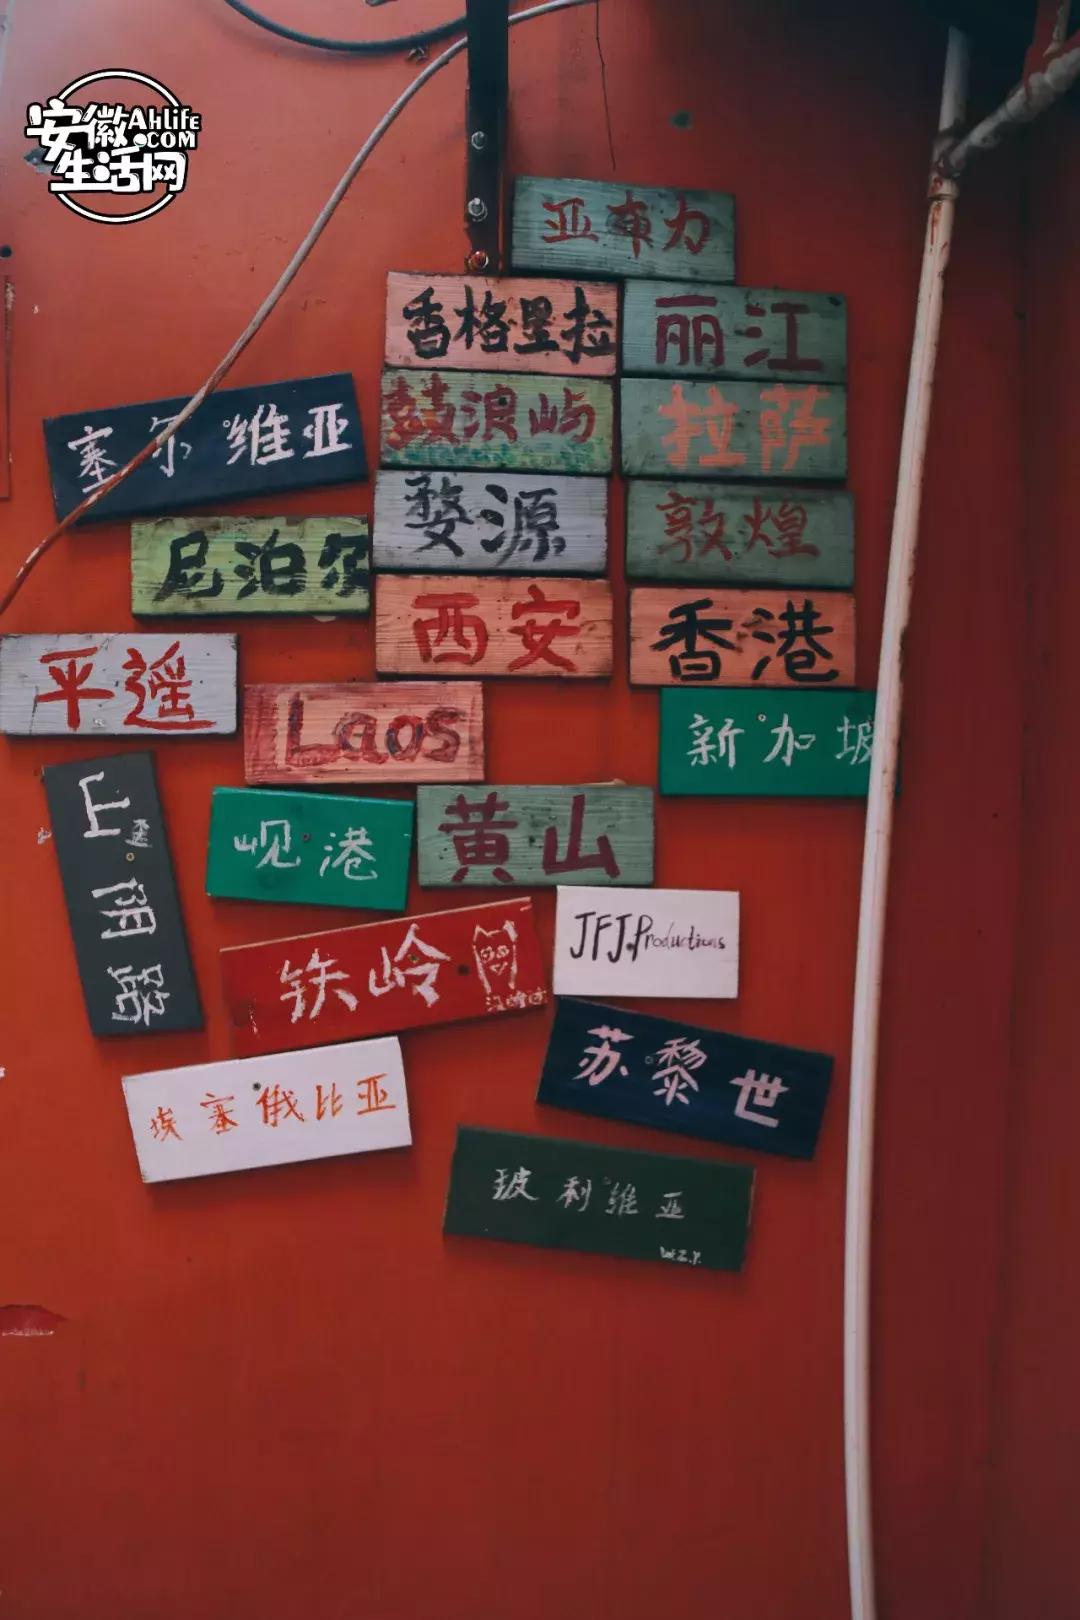 安徽
AHLIFE
.COM
生活网
亚布力
香格里拉
丽江
鼓浪屿
拉萨
塞尔维亚
婺源
敦煌
尼泊尔
西安
香港
平遥
Laos
新加坡
山阴路
岘港
黄山
JFJ.Productions
铁岭
苏黎世
埃塞俄比亚
玻利维亚
W.Z.Y.